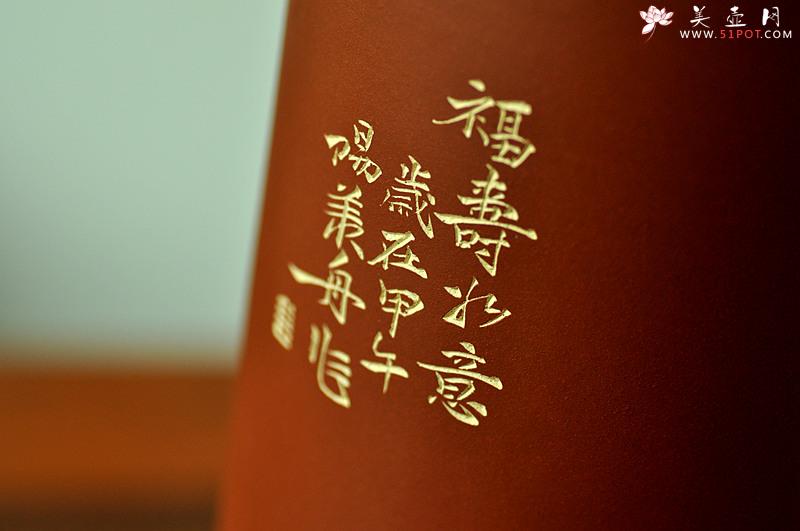 福壽如意
歲在甲午
陽羨丹作
美壶网
WWW.51POT.COM